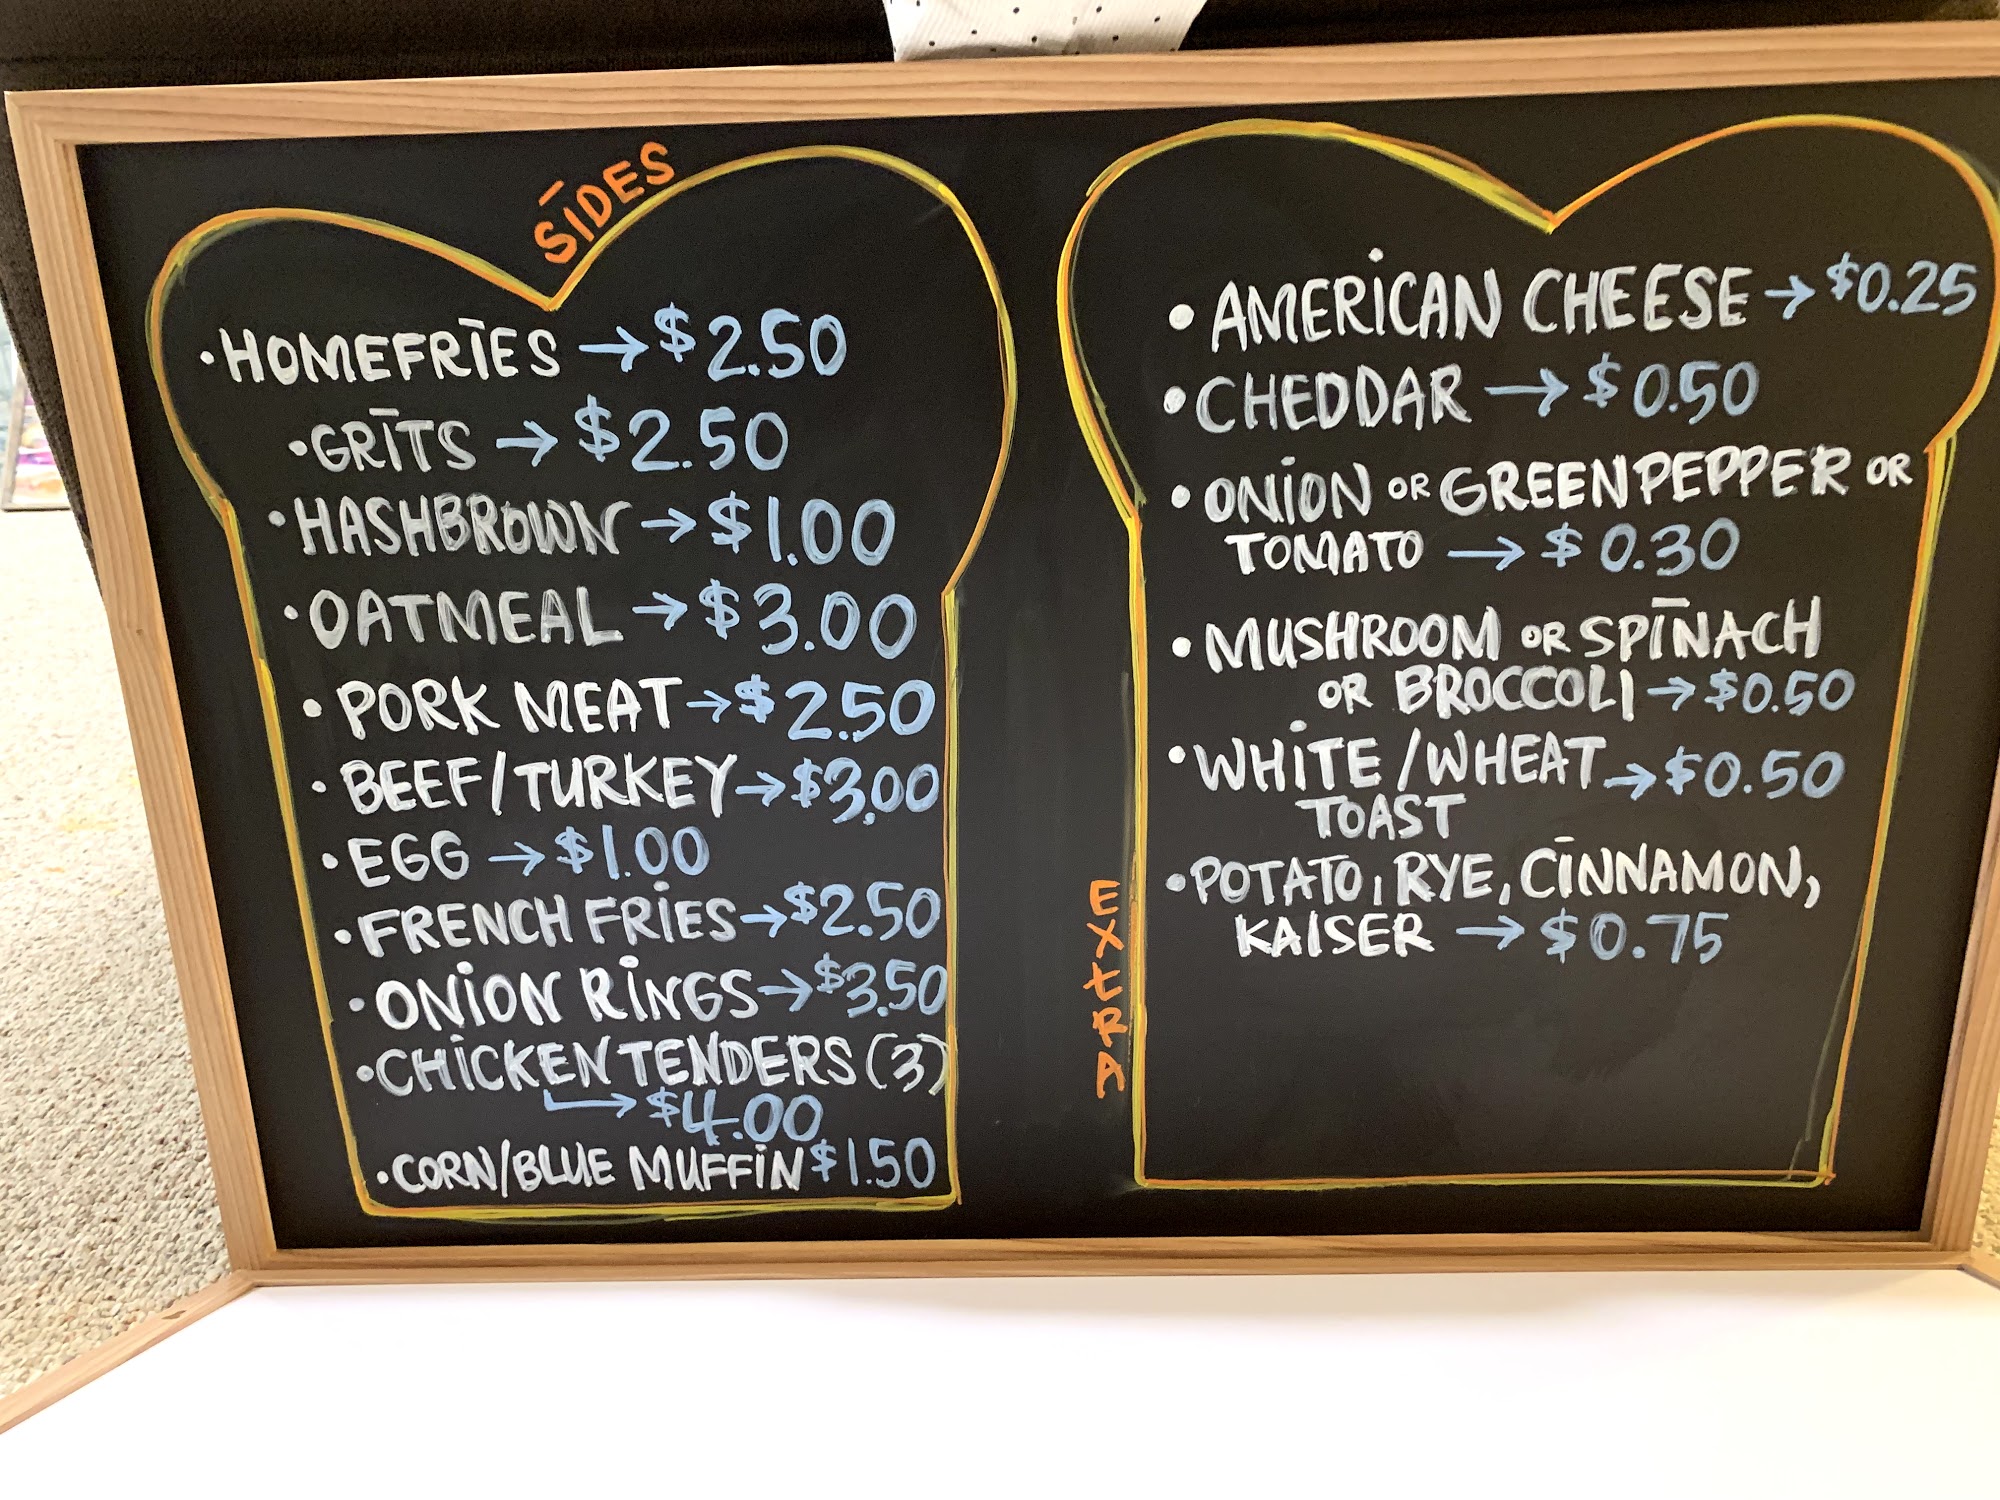 SIDES
•HOMEFRIES → $2.50
•GRITS → $2.50
•HASHBROWN → $1.00
•OATMEAL → $3.00
•PORK MEAT → $2.50
•BEEF/TURKEY → $3.00
•EGG → $1.00
•FRENCH FRIES → $2.50
•ONION RINGS → $3.50
•CHICKEN TENDERS (3)
→ $4.00
•CORN/BLUE MUFFIN $1.50
EXTRA
•AMERICAN CHEESE → $0.25
•CHEDDAR → $0.50
•ONION OR GREEN PEPPER OR
TOMATO → $0.30
•MUSHROOM OR SPINACH
OR BROCCOLI → $0.50
•WHITE/WHEAT → $0.50
TOAST
•POTATO, RYE, CINNAMON,
KAISER → $0.75